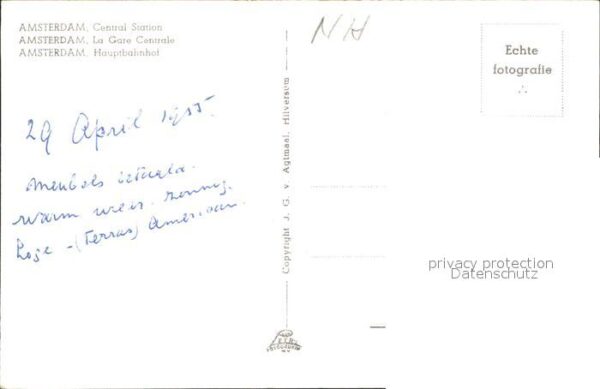 AMSTERDAM, Central Station
AMSTERDAM, La Gare Centrale
AMSTERDAM, Hauptbahnhof
NH
Echte
fotografie
29 April 1955.
warm weer. zonnig.
(Terras) American.
Copyright J. G. v. Agtmaal, Hilversum
privacy protection
Datenschutz